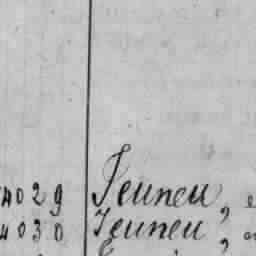 4029 Jeuneu,
4030 Jeuneu,